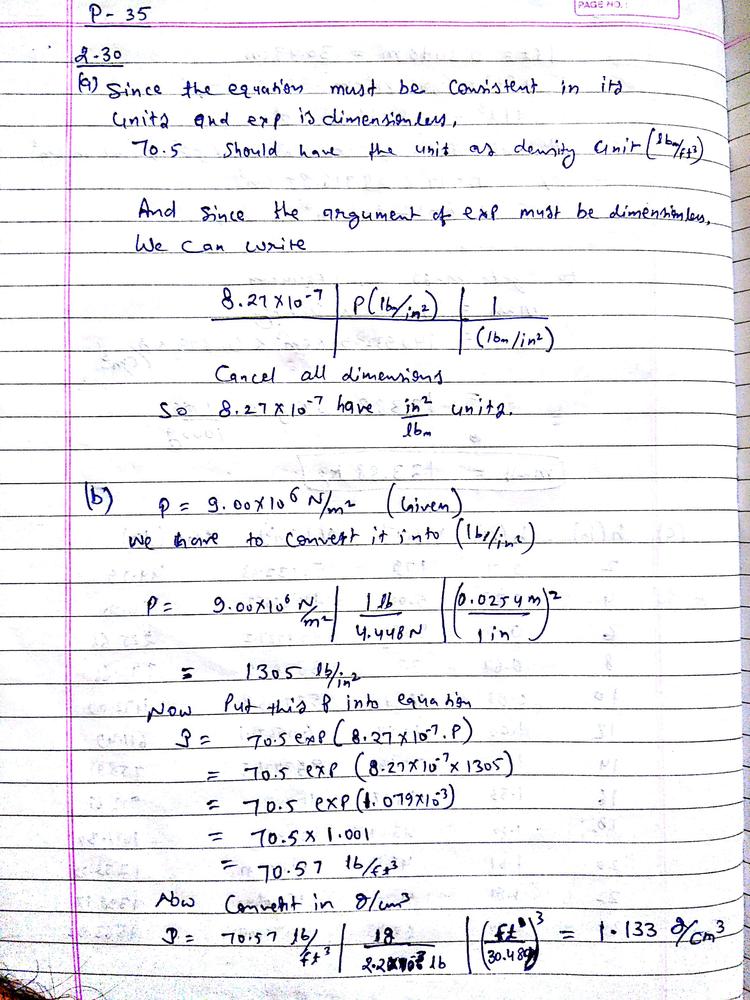 PAGE NO.:
P- 35
2-30
(a) Since the equation must be consistent in its
units and exp is dimensionless,
70.5 should have the unit as density unit (lbm/ft³)
And since the argument of exp must be dimensionless,
We can write
8.27×10⁻⁷ | P(lbm/in²) | 1
(lbm/in²)
Cancel all dimensions
So 8.27×10⁻⁷ have in²/lbm units.
(b) P = 9.00×10⁶ N/m² (Given)
We have to convert it into (lbf/in²)
P = 9.00×10⁶ N/m² | 1 lb/4.448 N | (0.0254 m/1 in)²
= 1305 lb/in²
Now Put this P into equation
ρ = 70.5 exp(8.27×10⁻⁷.P)
= 70.5 exp (8.27×10⁻⁷×1305)
= 70.5 exp(1.079×10⁻³)
= 70.5 × 1.001
= 70.57 lb/ft³
Now Convert in g/cm³
ρ = 70.57 lb/ft³ | 1g / lb | (ft/30.48)³ = 1.133 g/cm³